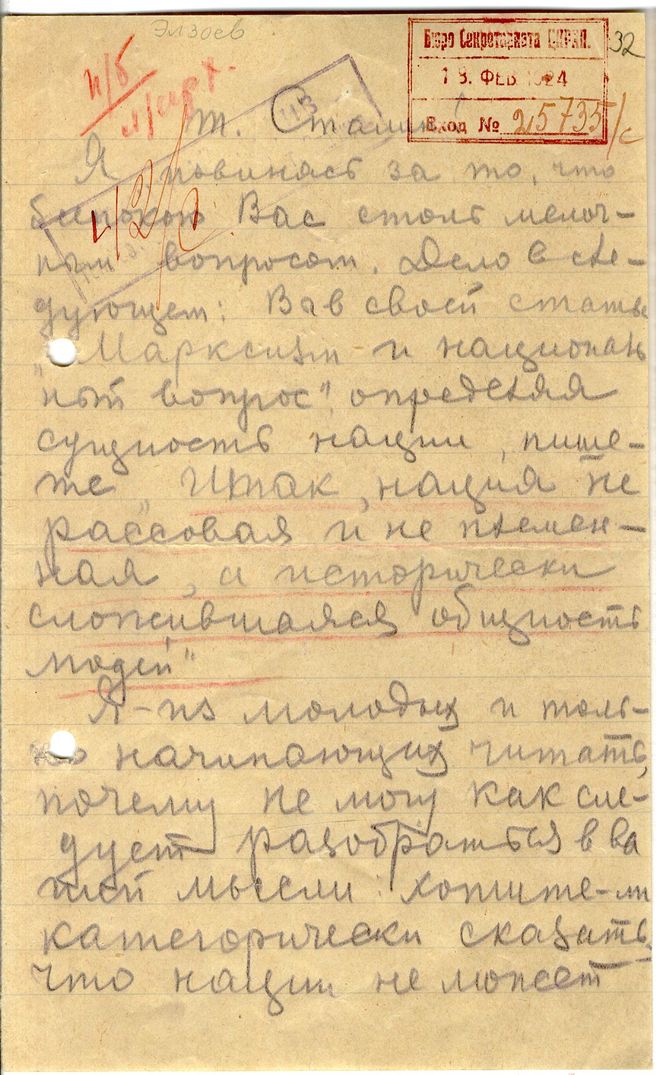 Элзоев
Бюро Секретариата ЦКРКП.
32
18. ФЕВ 1924
Вход № 25735/с
т. Сталин
Я повинясь за то, что
беспокою Вас столь мелоч-
ным вопросом. Дело в сле-
дующем: Вы в своей статье
„Марксизм и националь
ный вопрос", определяя
сущность нации, пише-
те „Итак, нация не
рассовая и не племен-
ная, а исторически
сложившаяся общность
людей"
Я-из молодых и толь-
ко начинающих читать,
почему не могу как сле-
дует разобраться в ва
шей мысли: хотите-ли
категорически сказать,
что нации не может